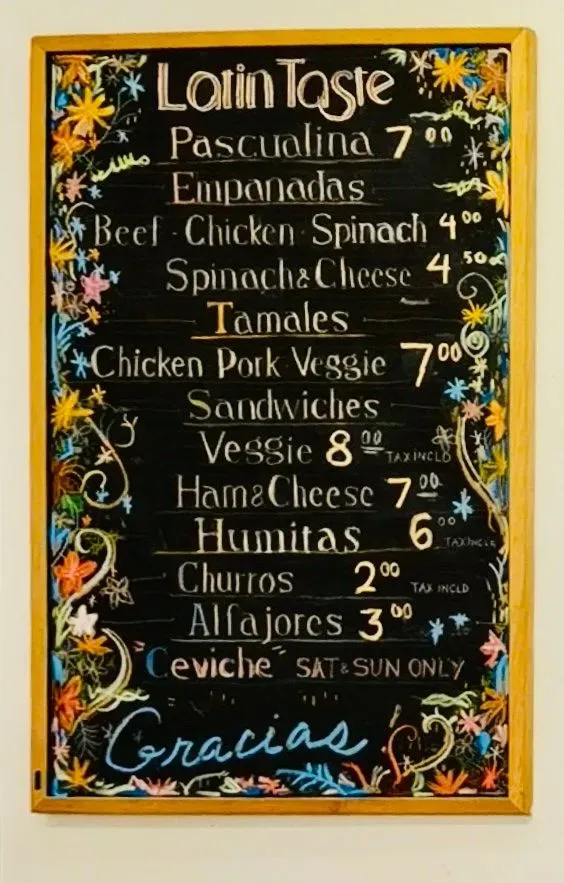 Latin Taste
Pascualina 7 00
Empanadas
Beef - Chicken Spinach 4 00
Spinach & Cheese 4 50
Tamales
Chicken Pork Veggie 7 00
Sandwiches
Veggie 8 00 TAX INCLD
Ham & Cheese 7 00
Humitas 6 00 TAX INCL
Churros 2 00 TAX INCLD
Alfajores 3 00
"Ceviche" SAT & SUN ONLY
Gracias